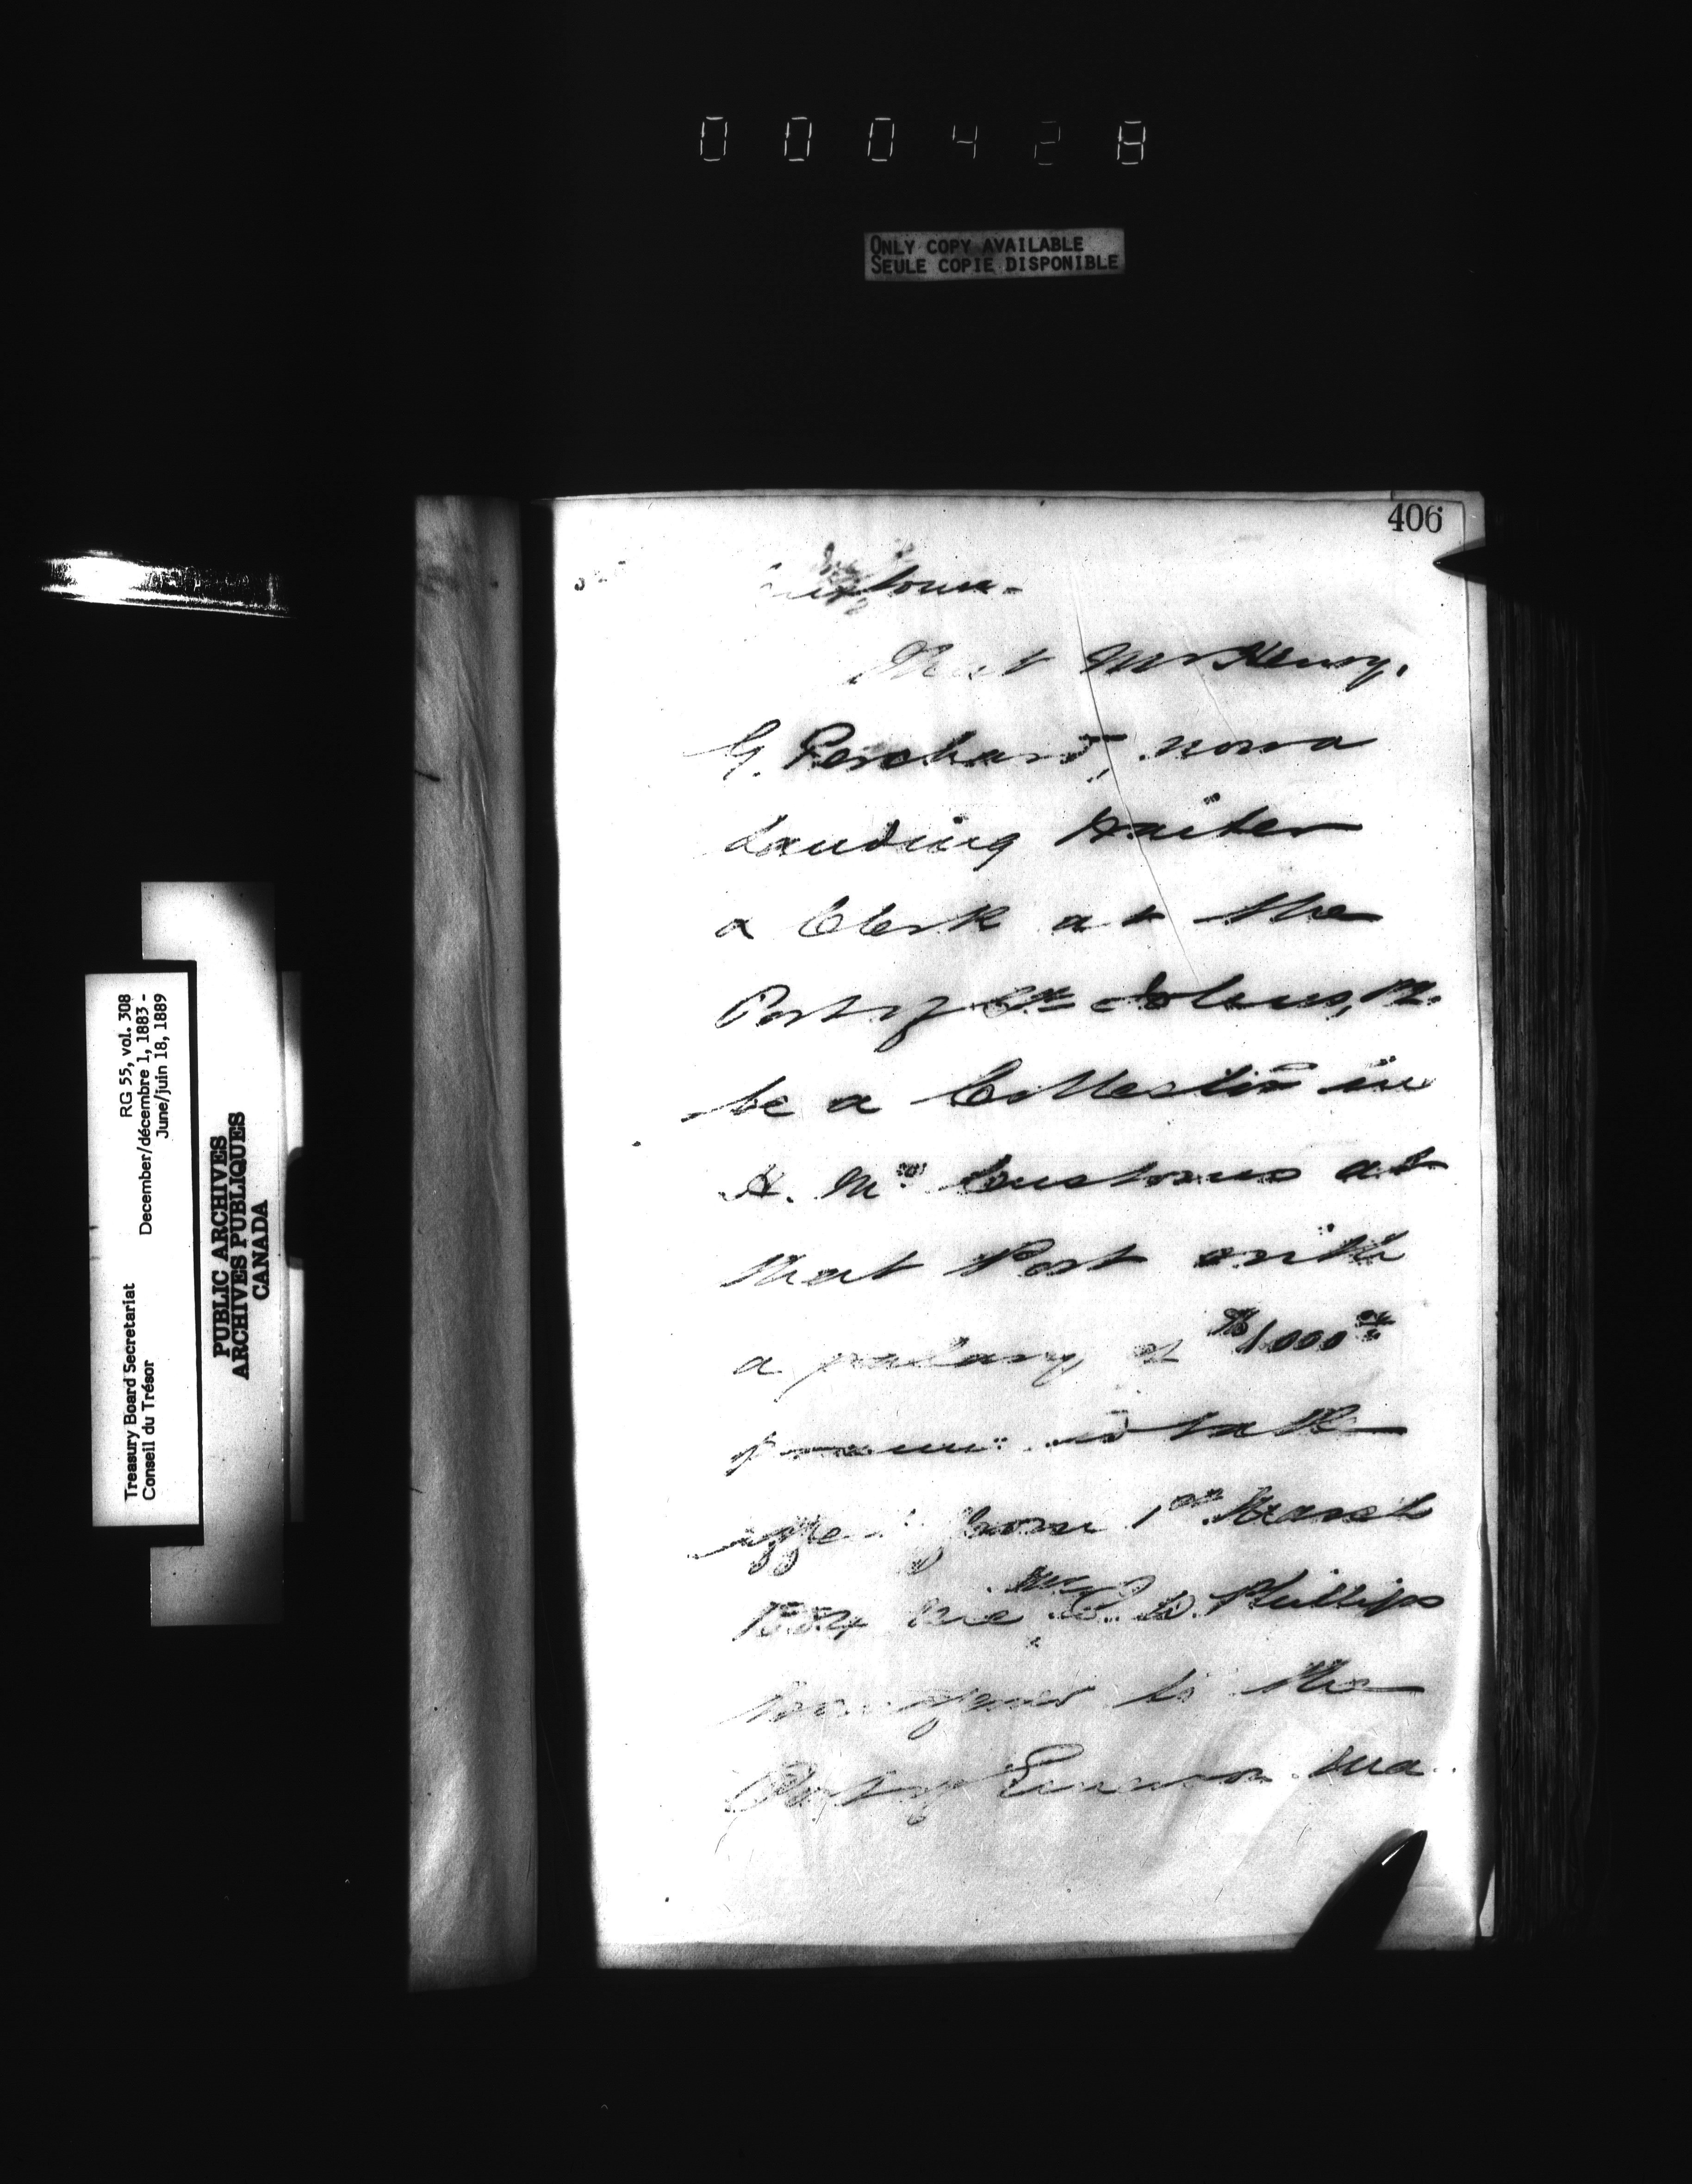 0 0 0 4 2 8
ONLY COPY AVAILABLE
SEULE COPIE DISPONIBLE
406
Customs
That Mr Henry.
G. Perchard, now a
Landing Waiter
a Clerk at the
Port of St Johns, P.
be a Collector in
H. M's Customs at
that Port with
a salary of $1000
effect from 1st March
1884 vice Mr C. D. Phillips
transferred to the
Port of Emerson Ma
Treasury Board Secretariat RG 55, vol. 308
Conseil du Trésor December/décembre 1, 1883 -
June/juin 18, 1889
PUBLIC ARCHIVES
ARCHIVES PUBLIQUES
CANADA